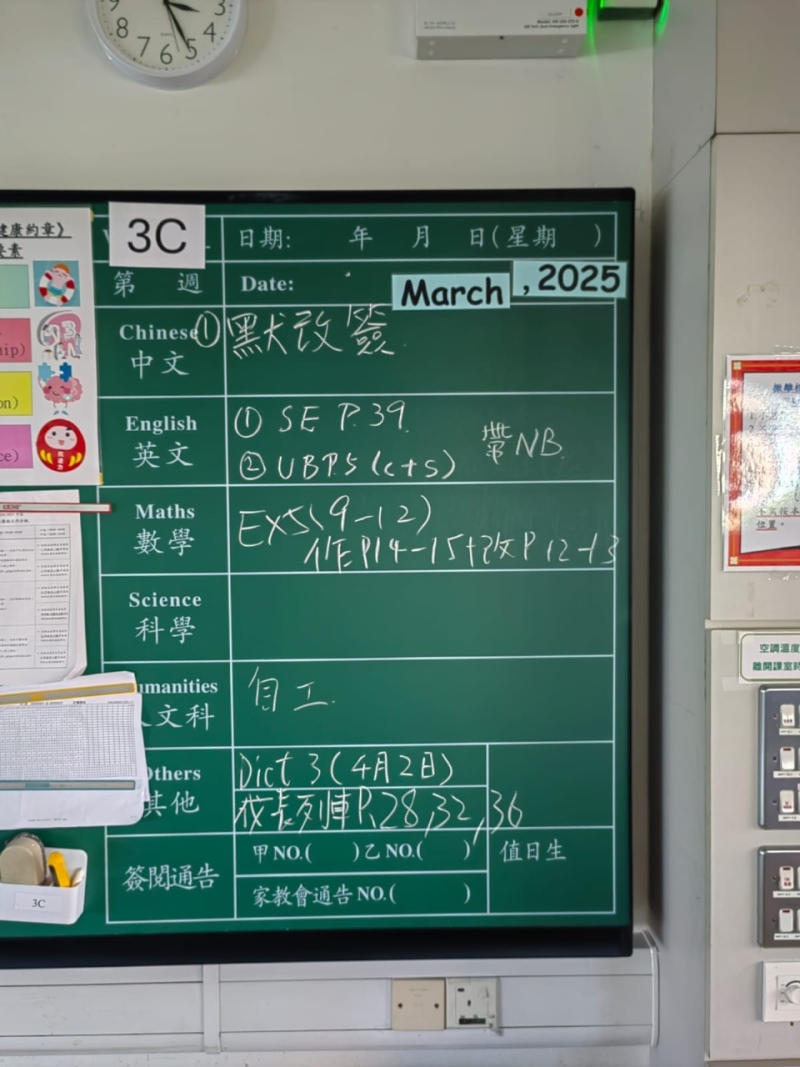 9 3
8 4
7 6 5
健康約章》
要素
3C
日期: 年 月 日(星期 )
第 週
Date:
March , 2025
Chinese
中文
① 默改簽
English
英文
① SE P.39
② UB P5 (c+s)
帶NB
Maths
數學
EX5(9-12)
作E P14-15+改 P 12-13
Science
科學
umanities
文科
自工
Others
其他
Dict 3 (4月2日)
校長列車P.28,32,36
簽閱通告
甲NO.( )乙NO.( )
家教會通告NO.( )
值日生
3C
空調溫度
離開課室時
位置。